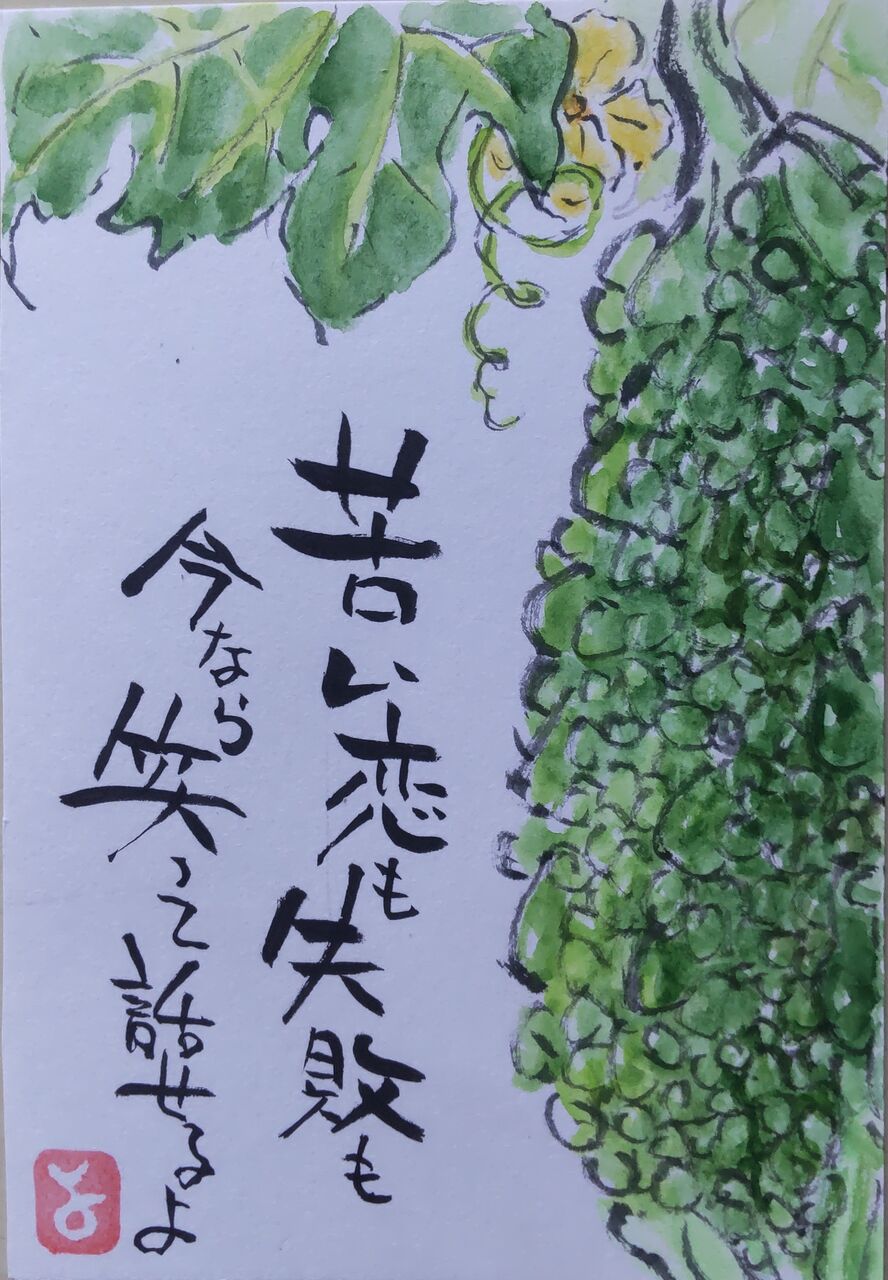 苦い恋も失敗も
今なら笑って話せるよ
よ